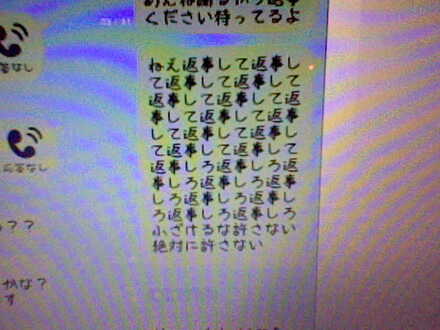 ください待ってるよ
ねえ返事して返事し
て返事して返事して
返事して返事して返
事して返事して返事
して返事して返事し
て返事して返事して
返事しろ返事しろ返
事しろ返事しろ返事
しろ返事しろ返事し
ろ返事しろ返事しろ
ふざけるな許さない
絶対に許さない
答なし
応答なし
？？
かな？
す